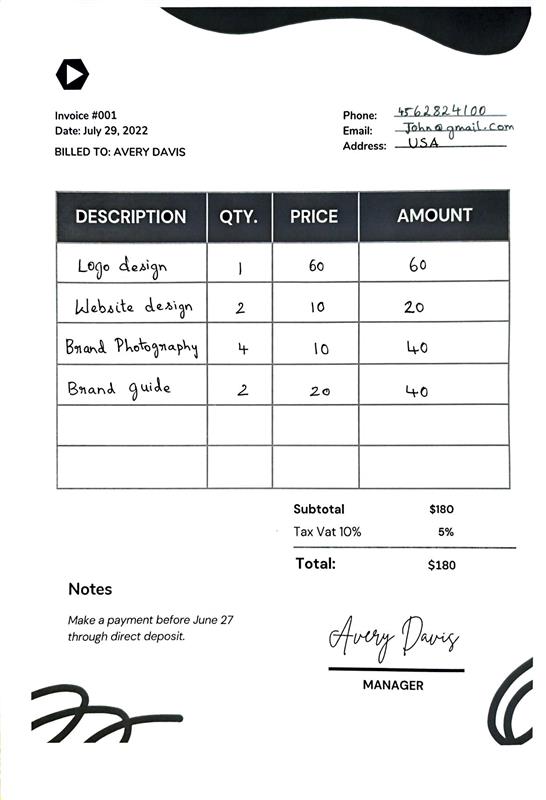 Invoice #001
Date: July 29, 2022
BILLED TO: AVERY DAVIS
Phone: 4562824100
Email: John@gmail.com
Address: USA
DESCRIPTION QTY. PRICE AMOUNT
Logo design 1 60 60
Website design 2 10 20
Brand Photography 4 10 40
Brand guide 2 20 40
Subtotal $180
Tax Vat 10% 5%
Total: $180
Notes
Make a payment before June 27
through direct deposit.
Avery Davis
MANAGER